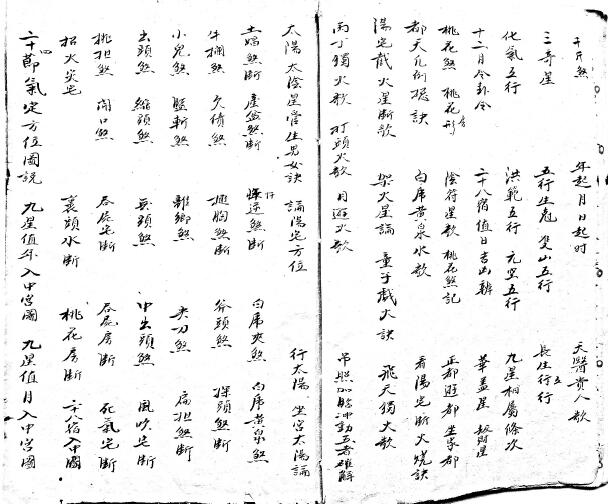 千斤煞 年起月日起时 天醫貴人歌
三奇星 五行生尅 雙山五行 長生五行
化氣五行 洪範五行 元空五行 九星相屬條次
十二月令卦令 二十八宿值日吉凶辨 華盖星 劫財星
桃花煞 桃花形 陰符星歌 桃花煞記 正都遊都坐家都
都天九例掘訣 白虎黃泉水歌 看陽宅断火燒訣
陽宅戲火星断歌 架火星論 童子戲火訣 飛天獨火歌
丙丁獨火歌 打頭火歌 月遊火歌 吊照加臨冲動五者確解
太陽太陰星管生男女訣 論陽宅方位 行太陽 坐宮太陽論
土婦煞断 產盆煞断 忤逆煞断 白虎夾煞 白虎黃泉煞
牛欄煞 欠債煞 搥胸煞断 斧頭煞 探頭煞断
小鬼煞 腰斬煞 離鄉煞 夾刀煞 肩担煞断
出頭煞 縮頭煞 頭煞 中出頭煞 風吹宅断
桃担煞 開口煞 吞屍宅断 吞屍房断 死氣宅断
招火炎宅 裏頭水断 桃花房断 二十八宿入中圖
二十四節氣定方位圖説 九星值年入中宮圖 九星值月入中宮圖